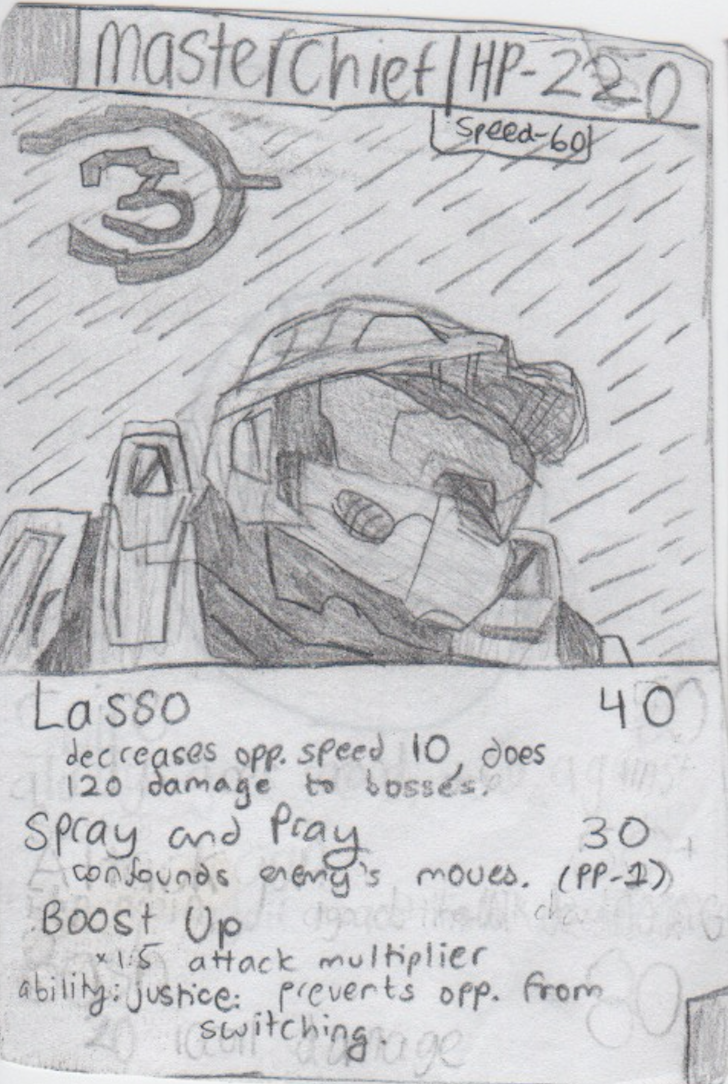 Master Chief | HP-220
Speed-60
3
Lasso 40
decreases opp. speed 10, does
120 damage to bosses.
Spray and Pray 30
confounds enemy's moves. (PP-1)
Boost Up
×1.5 attack multiplier
ability: justice: prevents opp. from
switching.